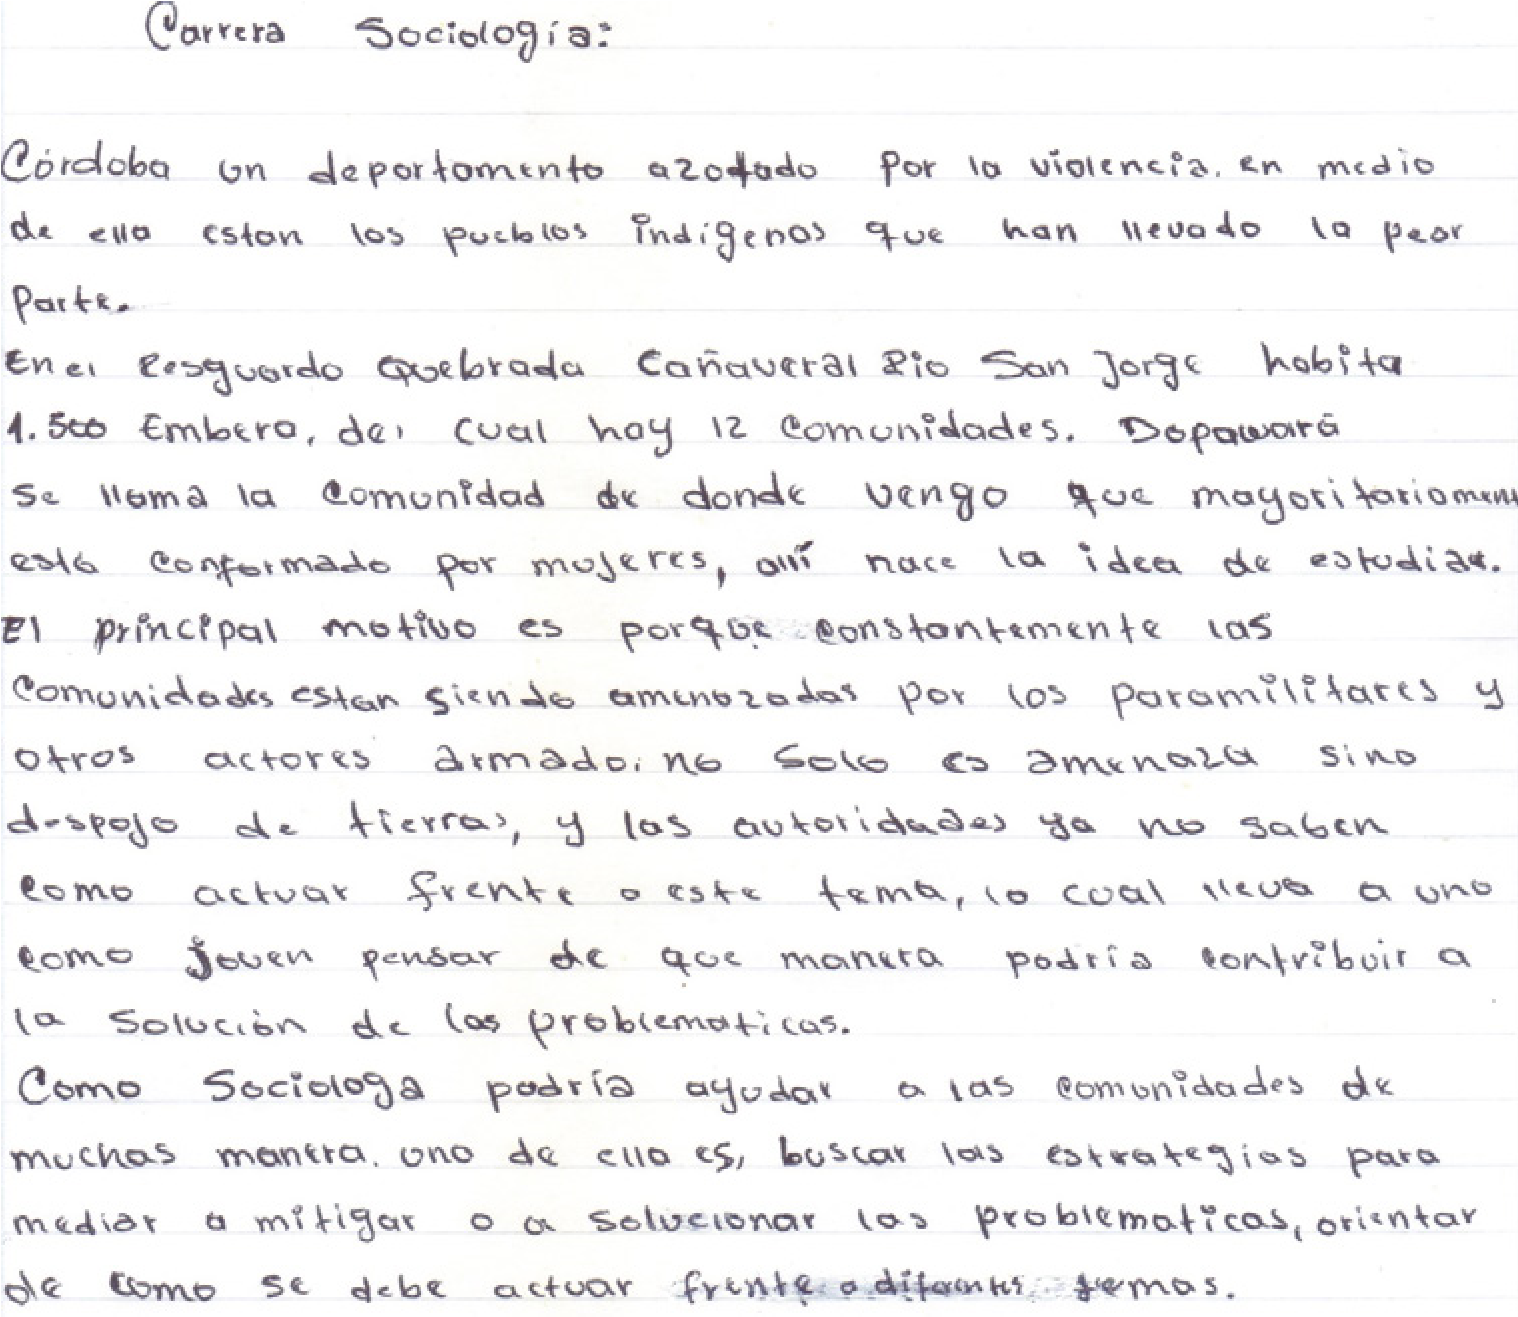 Carrera Sociología:
Córdoba un departamento azotado por la violencia. en medio
de ella estan los pueblos indígenas que han llevado la peor
parte.
En el Resguardo Quebrada Cañaveral Rio San Jorge habita
1.500 Embera, del cual hay 12 comunidades. Dopawará
se llama la comunidad de donde vengo que mayoritariament
está conformado por mujeres, allí nace la idea de estudiar.
El principal motivo es porque constantemente las
comunidades estan siendo amenazadas por los paramilitares y
otros actores armado. no solo es amenaza sino
despojo de tierras, y las autoridades ya no saben
como actuar frente a este tema, lo cual lleva a uno
como joven pensar de que manera podría contribuir a
la solución de las problematicas.
Como Sociologa podría ayudar a las comunidades de
muchas manera. uno de ella es, buscar las estrategias para
mediar a mitigar o a solucionar las problematicas, orientar
de como se debe actuar frente a diferentes temas.